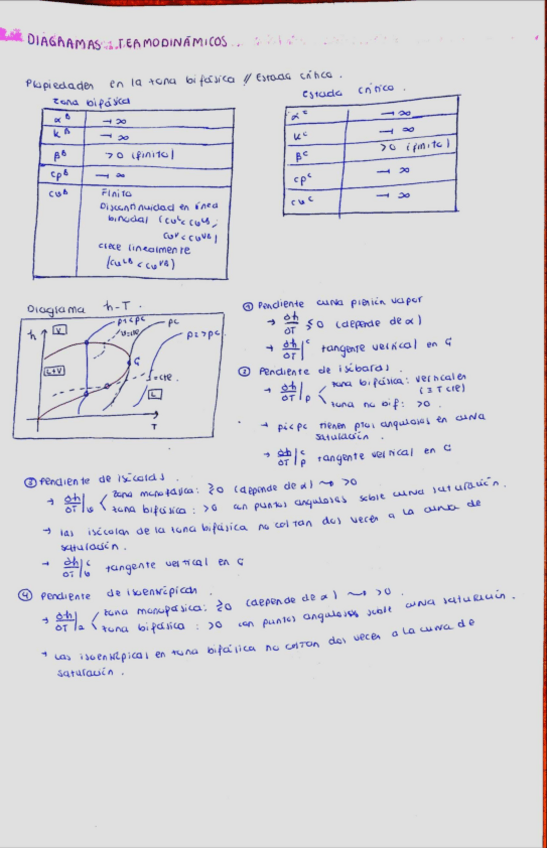 DIAGRAMAS TERMODINÁMICOS
Propiedades en la zona bifásica // Estado crítico.
zona bifásica
αᴮ → ∞
kᴮ → ∞
βᴮ >0 (finito)
cpᴮ → ∞
cvᴮ Finito
Discontinuidad en línea
binodal
crece linealmente
estado crítico.
αᶜ → ∞
kᶜ → ∞
βᶜ >0 (finito)
cpᶜ → ∞
cvᶜ → ∞
Diagrama h-T.
h V p<pc pc p>pc
L+V C
L
T
① Pendiente curva presión vapor
→ ∂h/∂T ≶ 0 (depende de α)
→ ∂h/∂T|ᶜ tangente vertical en C
② Pendiente de isóbaras.
→ ∂h/∂T|p zona bifásica: verticales
(≡ T cte)
zona no bif: >0.
→ p<pc tienen ptos angulosos en curva
saturación.
→ ∂h/∂T|ᶜp tangente vertical en C
③ Pendiente de isócoras.
→ ∂h/∂T|v zona monofásica: ≷0 (depende de α) ⇝ >0
zona bifásica: >0 con puntos angulosos sobre curva saturación.
→ las isócoras de la zona bifásica no cortan dos veces a la curva de
saturación.
→ ∂h/∂T|ᶜv tangente vertical en C
④ Pendiente de isoentrópicas.
→ ∂h/∂T|s zona monofásica: ≷0 (depende de α) ⇝ >0.
zona bifásica: >0 con puntos angulosos sobre curva saturación.
→ Las isoentrópicas en zona bifásica no cortan dos veces a la curva de
saturación.